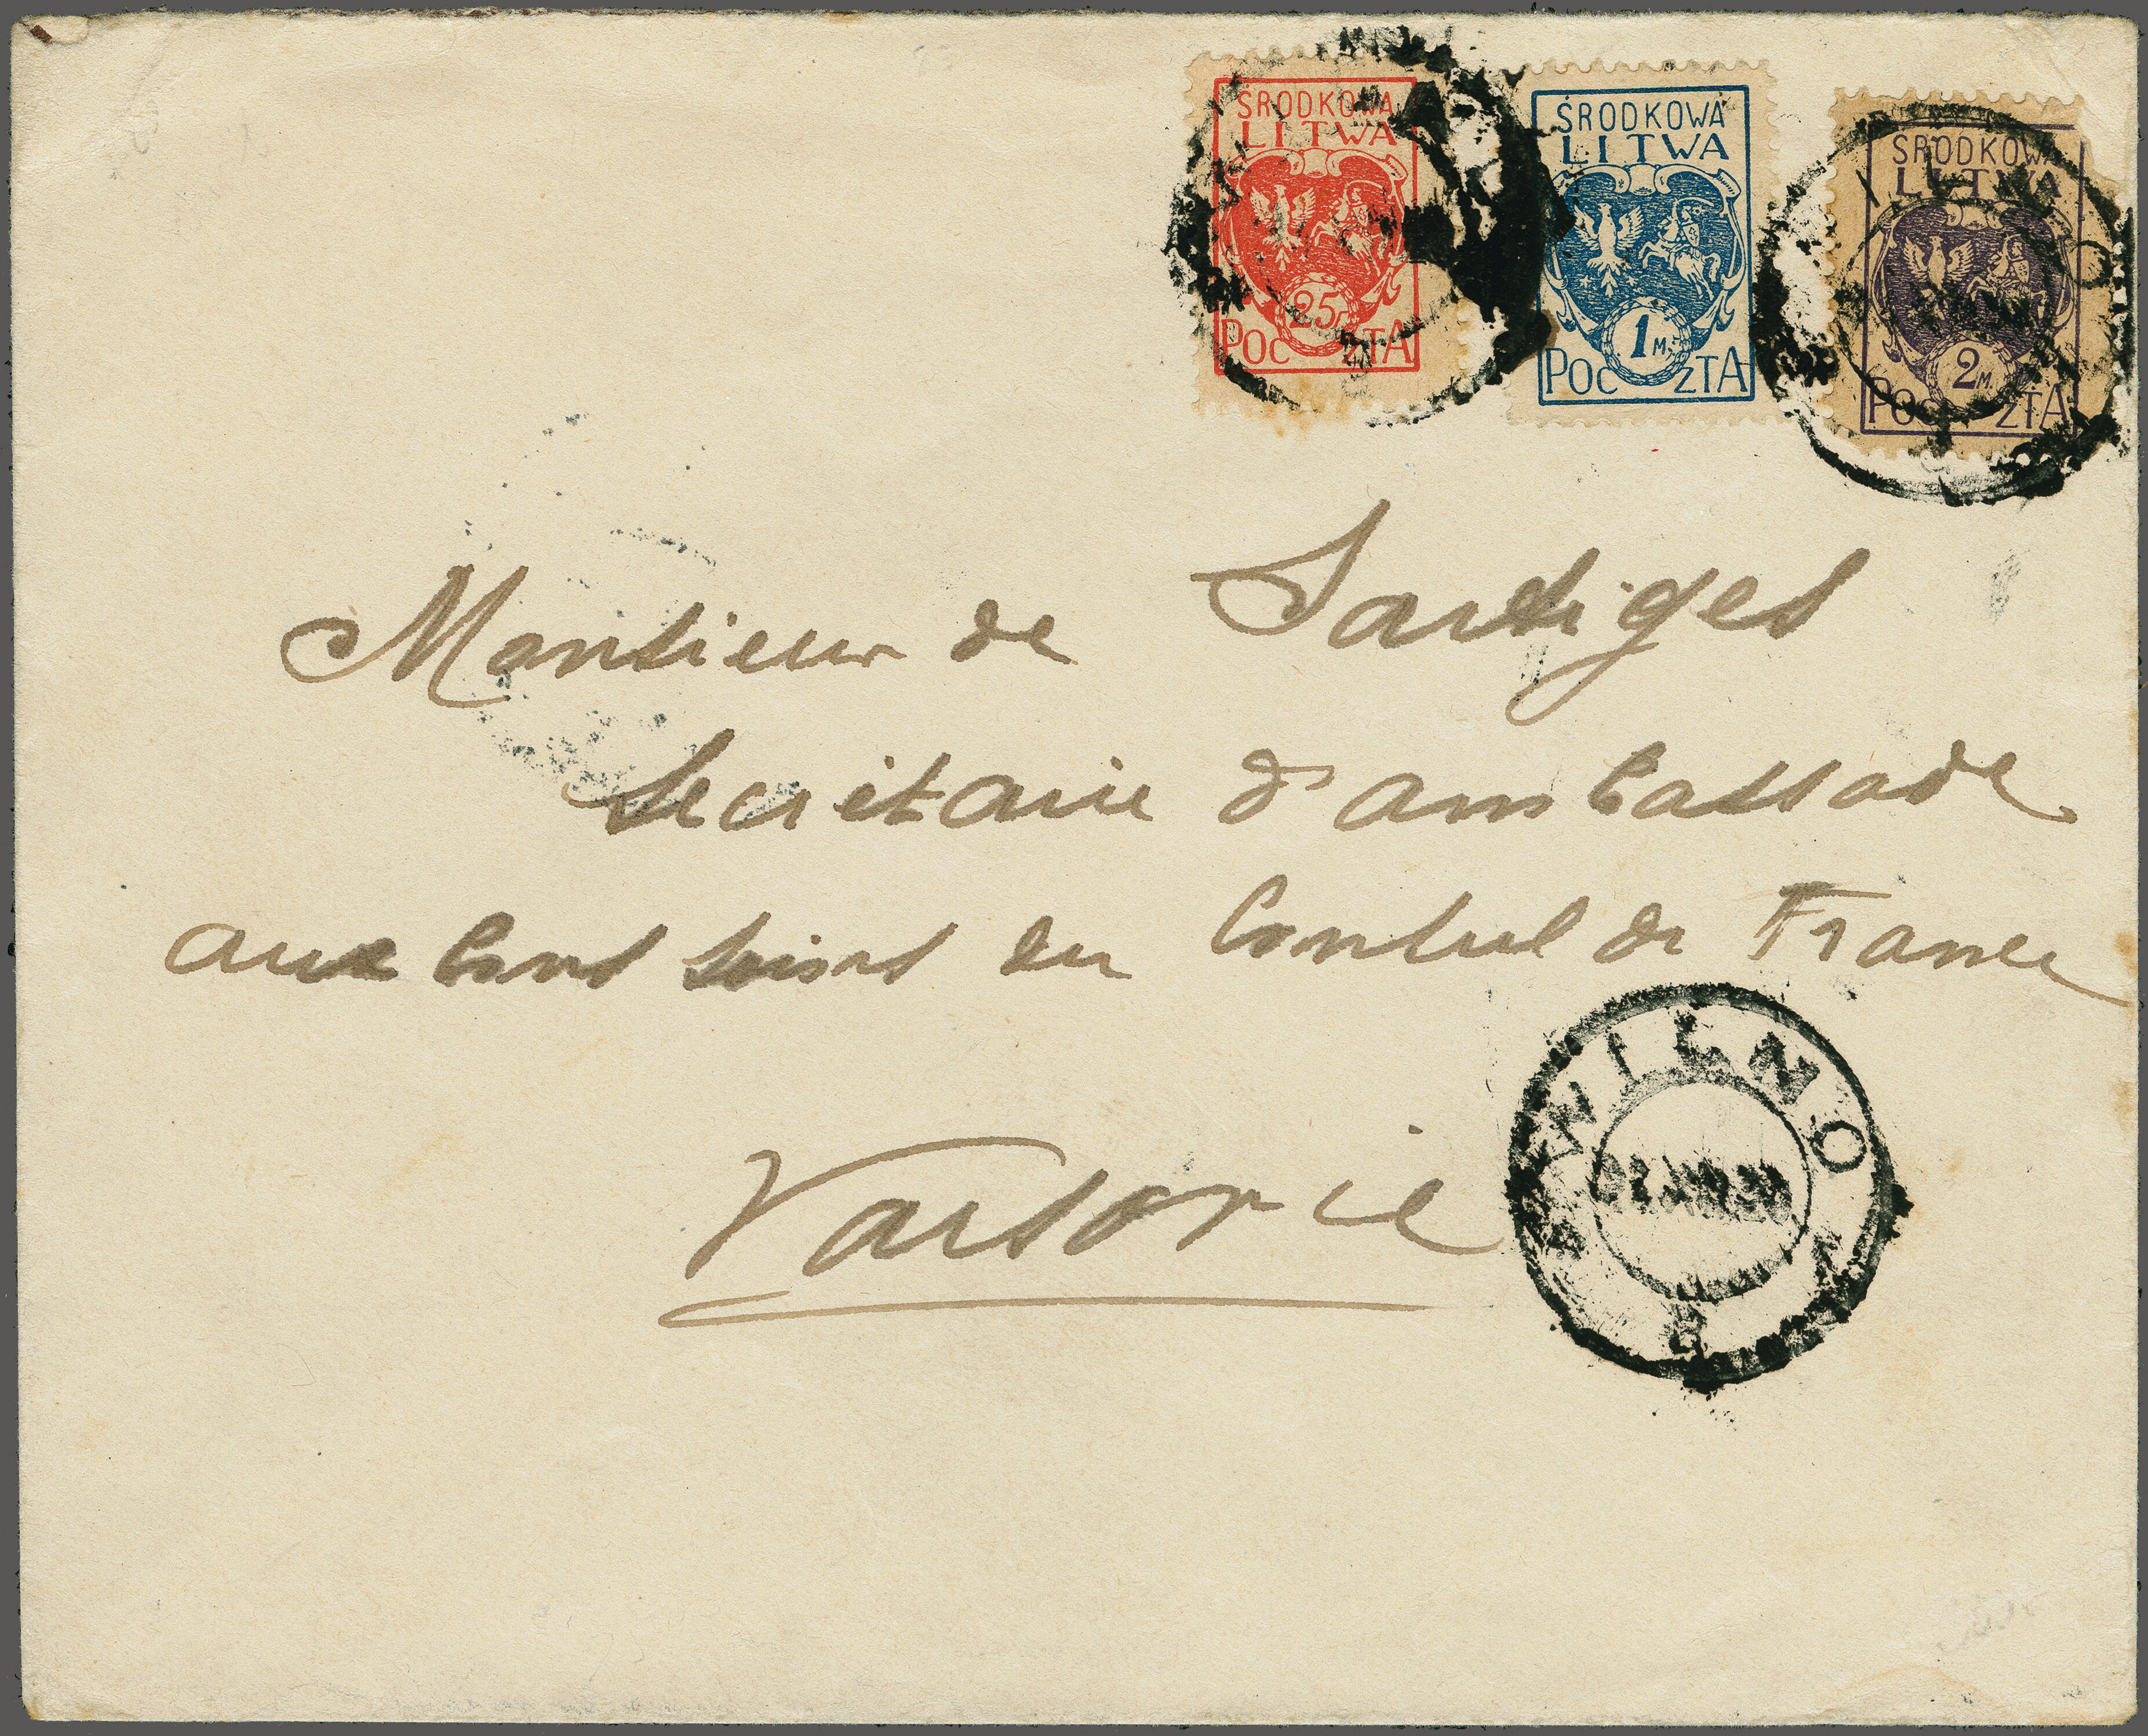 ŚRODKOWA
LITWA
25f
POCZTA
ŚRODKOWA
LITWA
1 M.
POCZTA
ŚRODKOWA
LITWA
2 M.
POCZTA
Monsieur de Sartiges
Secrétaire d'ambassade
aux bons soins du Consul de France
Varsovie
WILNO